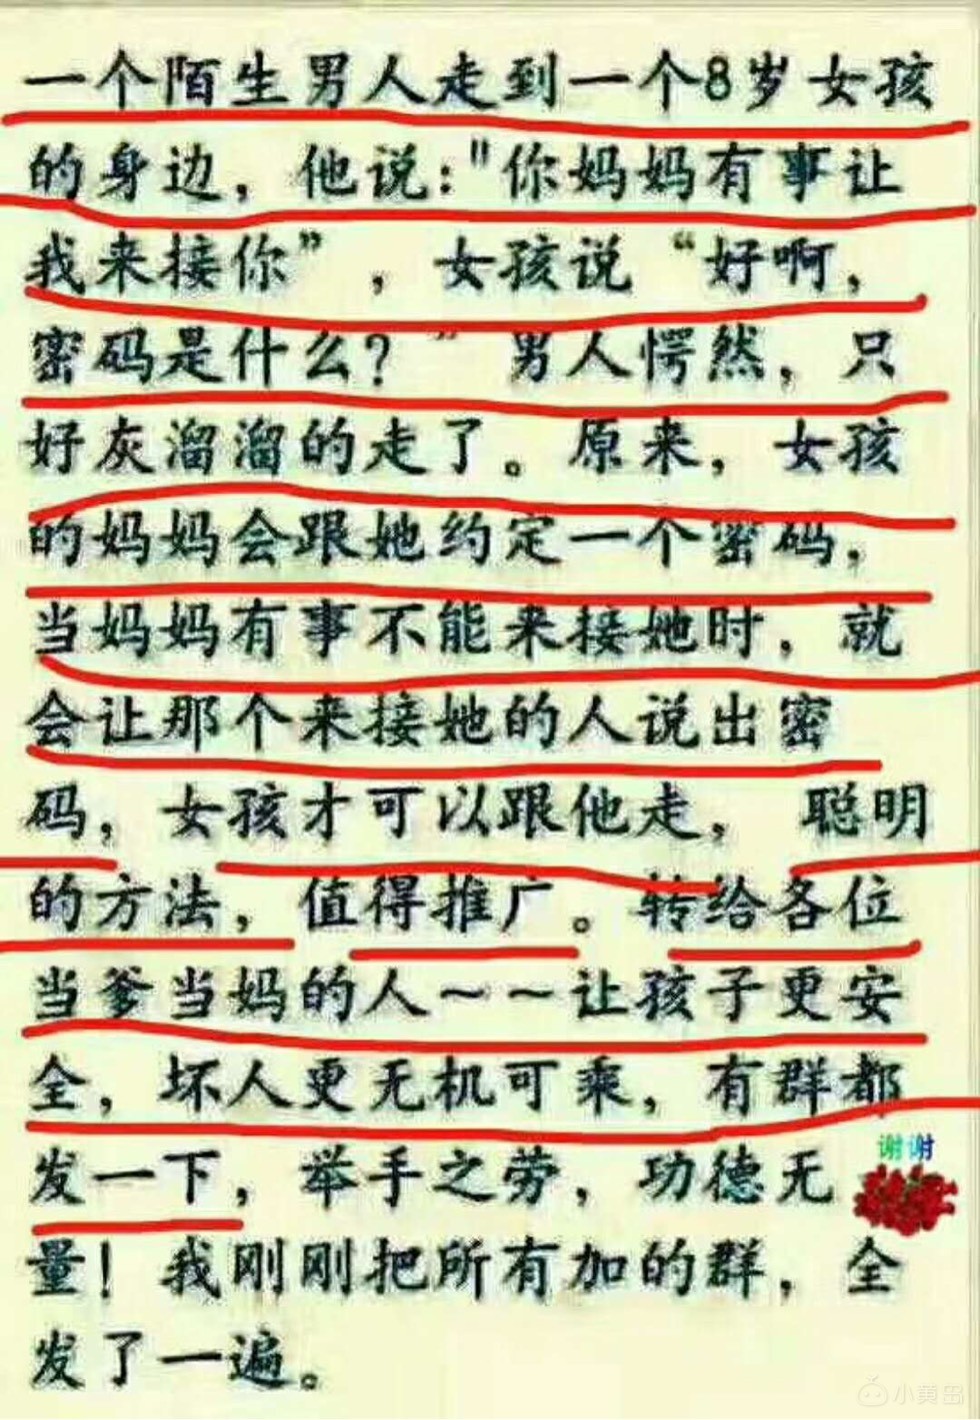 一个陌生男人走到一个8岁女孩
的身边，他说："你妈妈有事让
我来接你”，女孩说“好啊，
密码是什么？”男人愕然，只
好灰溜溜的走了。原来，女孩
的妈妈会跟她约定一个密码，
当妈妈有事不能来接她时，就
会让那个来接她的人说出密
码，女孩才可以跟他走，聪明
的方法，值得推广。转给各位
当爹当妈的人～～让孩子更安
全，坏人更无机可乘，有群都
发一下，举手之劳，功德无
谢谢
量！我刚刚把所有加的群，全
发了一遍。
小黄岛